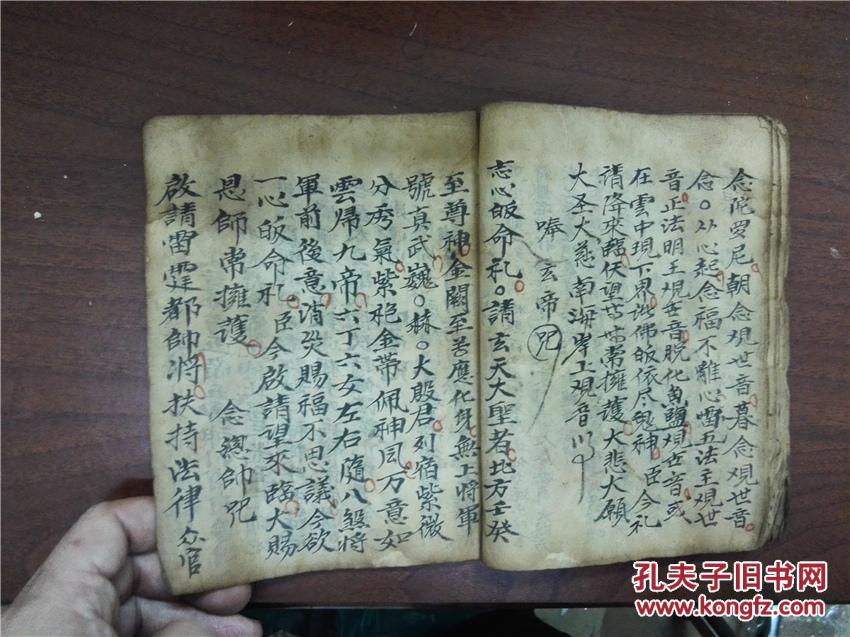 念陀罗尼朝念观世音暮念观世音
念〇从心起念福不離心㘞五法王观世
音正法明王观世音脱化魚籃观世音或
在雲中現下界诸佛皈依尽鬼神臣今礼
请降來臨伏望世世常擁護大悲大願
大圣大慈南海岸上观音
奉玄帝咒
志心皈命礼〇請玄天大聖者北方壬癸
至尊神金闕至苦應化身無上将軍
號真武巍〇赫〇大殷君列宿紫微
分秀氣紫袍金带佩神風万意如
雲帰九帝六丁六女左右隨八煞将
軍前後意消災賜福不思議今欲
一心皈命礼臣今啟請望來臨大賜
恩師常擁護
念總帥咒
啟請雷霆都帥将扶持法律众官
孔夫子旧书网
www.kongfz.com